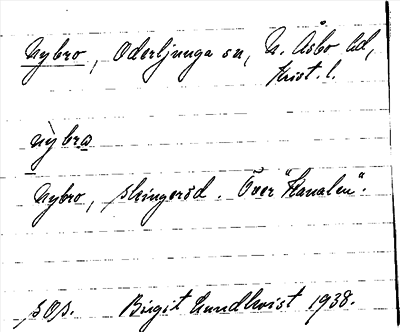 Nybro, Oderljunga sn, N. Åsbo hd,
Krist. l.
nỳbra
Nybro, Skingeröd. Över "Kanalen".
sOs. Birgit Lundkvist 1938.